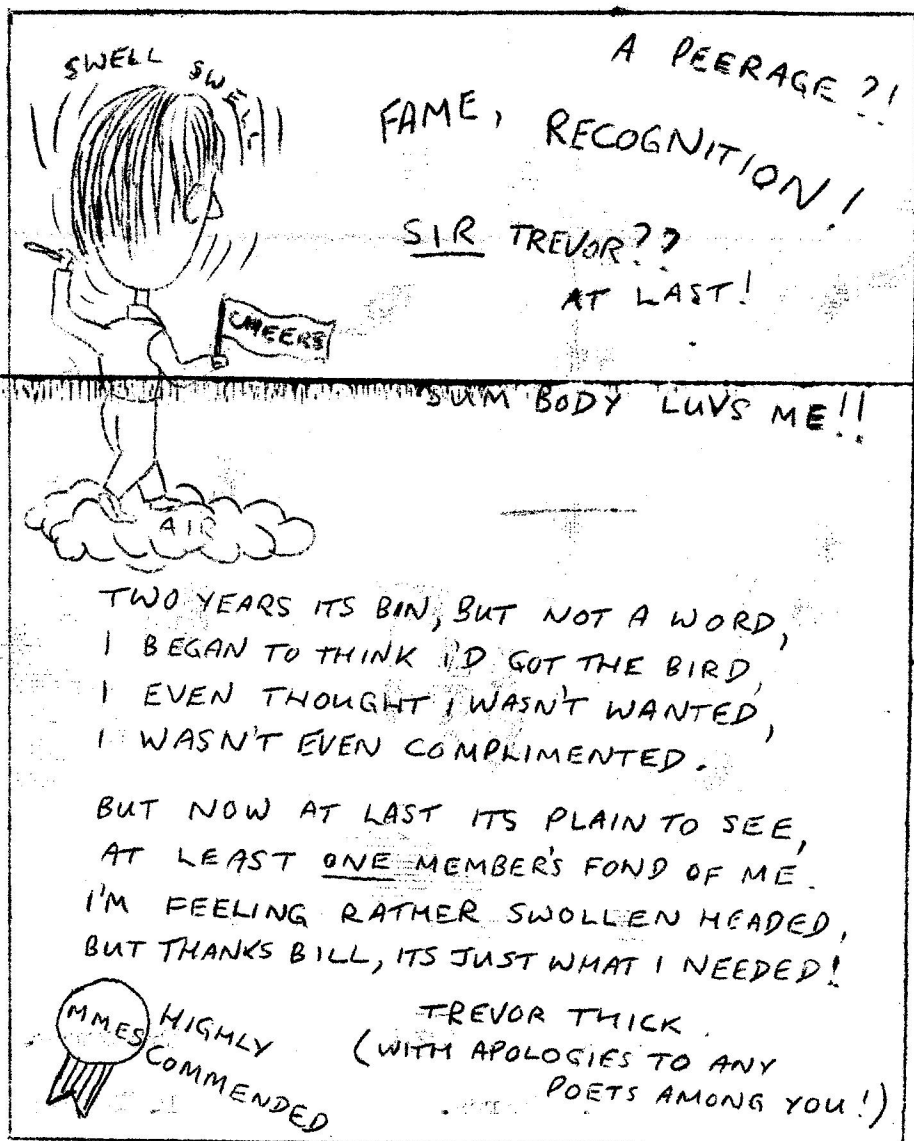 SWELL SWELL
A PEERAGE ?!
FAME, RECOGNITION!
SIR TREVOR??
AT LAST!
CHEERS
SUM BODY LUVS ME!!
AIR
TWO YEARS ITS BIN, BUT NOT A WORD,
I BEGAN TO THINK I'D GOT THE BIRD,
I EVEN THOUGHT I WASN'T WANTED,
I WASN'T EVEN COMPLIMENTED.
BUT NOW AT LAST ITS PLAIN TO SEE,
AT LEAST ONE MEMBER'S FOND OF ME.
I'M FEELING RATHER SWOLLEN HEADED,
BUT THANKS BILL, ITS JUST WHAT I NEEDED!
MMES HIGHLY
COMMENDED
TREVOR THICK.
(WITH APOLOGIES TO ANY
POETS AMONG YOU!)